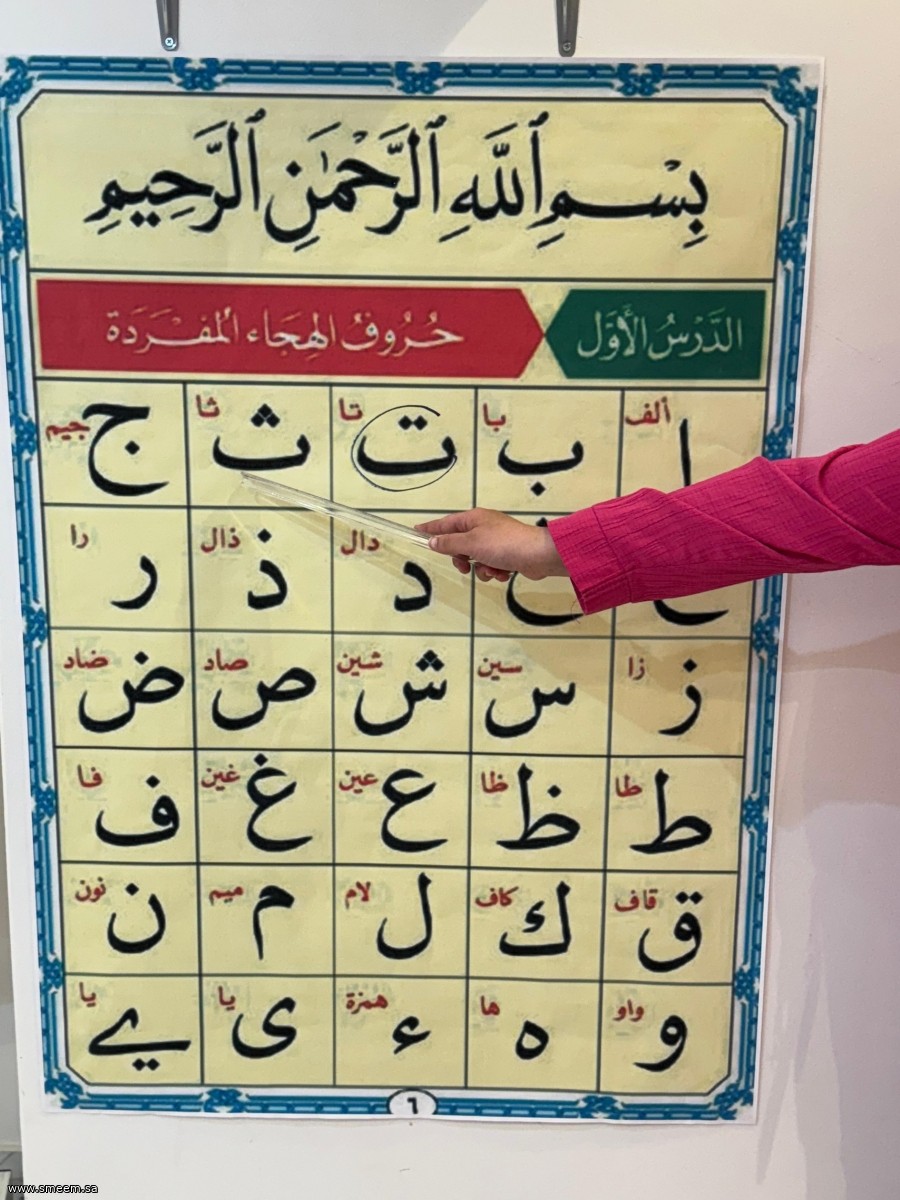 بِسْمِ ٱللَّهِ ٱلرَّحْمَٰنِ ٱلرَّحِيمِ
الدَّرْسُ الْأَوَّل حُرُوفُ الهِجَاء المُفْرَدَة
ألف ا با ب تا ت ثا ث جيم ج
دال د ذال ذ را ر
زا ز سين س شين ش صاد ص ضاد ض
طا ط ظا ظ عين ع غين غ فا ف
قاف ق كاف ك لام ل ميم م نون ن
واو و ها ه همزة ء يا ى يا ے
٦
www.smeem.sa